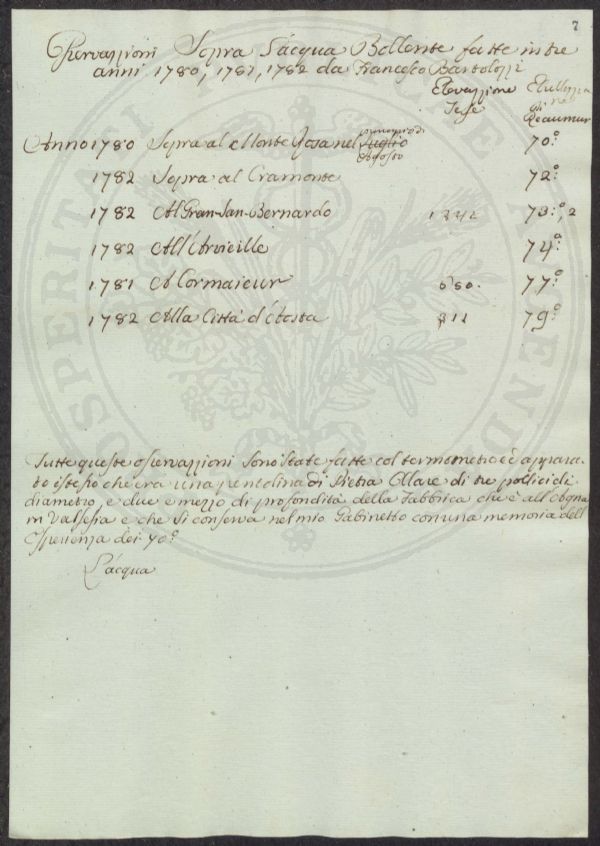 7
Osservazzioni Sopra l'acqua Bollente fatte in tre
anni 1780, 1781, 1782 da Francesco Bartolozzi
Elevazzione
Tese
di
Reaumur
Anno 1780 Sopra al Monte Rosa nel luglio principio di Agosto 70.°
1782 Sopra al Cramonte 72.°
1782 Al Gran-San-Bernardo 73.°,2
1782 All'Arvieille 74.°
1781 A Cormaieur 77.°
1782 Alla Città d'Aosta 311 79.°
Tutte queste osservazzioni Sono state fatte col termometro ed appara-
to istesso che era una pentolina di Pietra Ollare di tre pollici di
diametro, e due e mezzo di profondità della Fabbrica che è all'Alagna
in Valsesia e che si conserva nel mio Gabinetto con una memoria dell'
Esperienza dei 70.°
L'acqua
PROSPERITATI